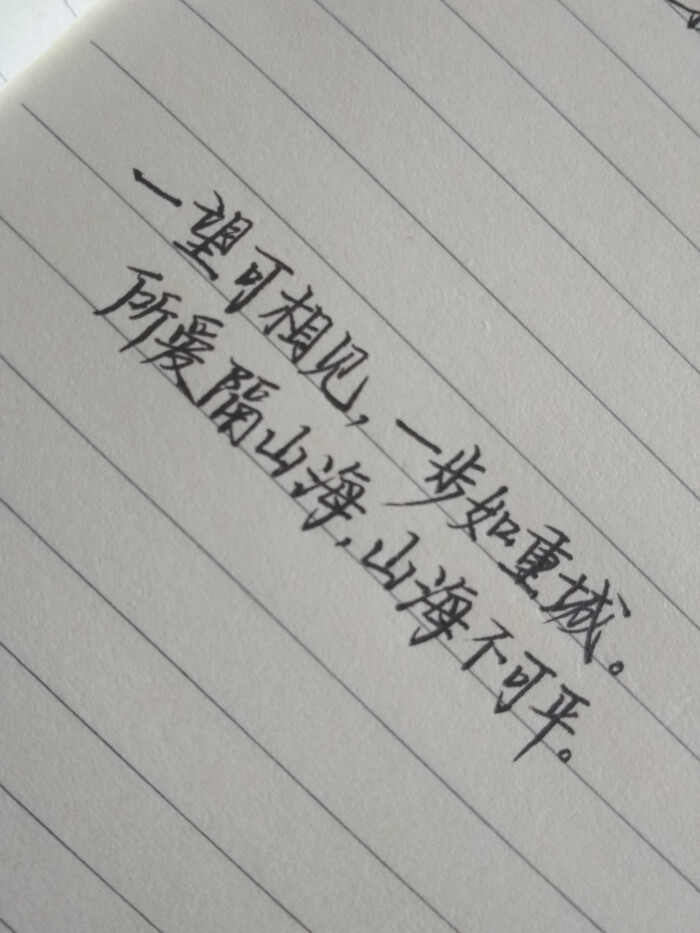 一望可相见，一步如重城。
所爱隔山海，山海不可平。